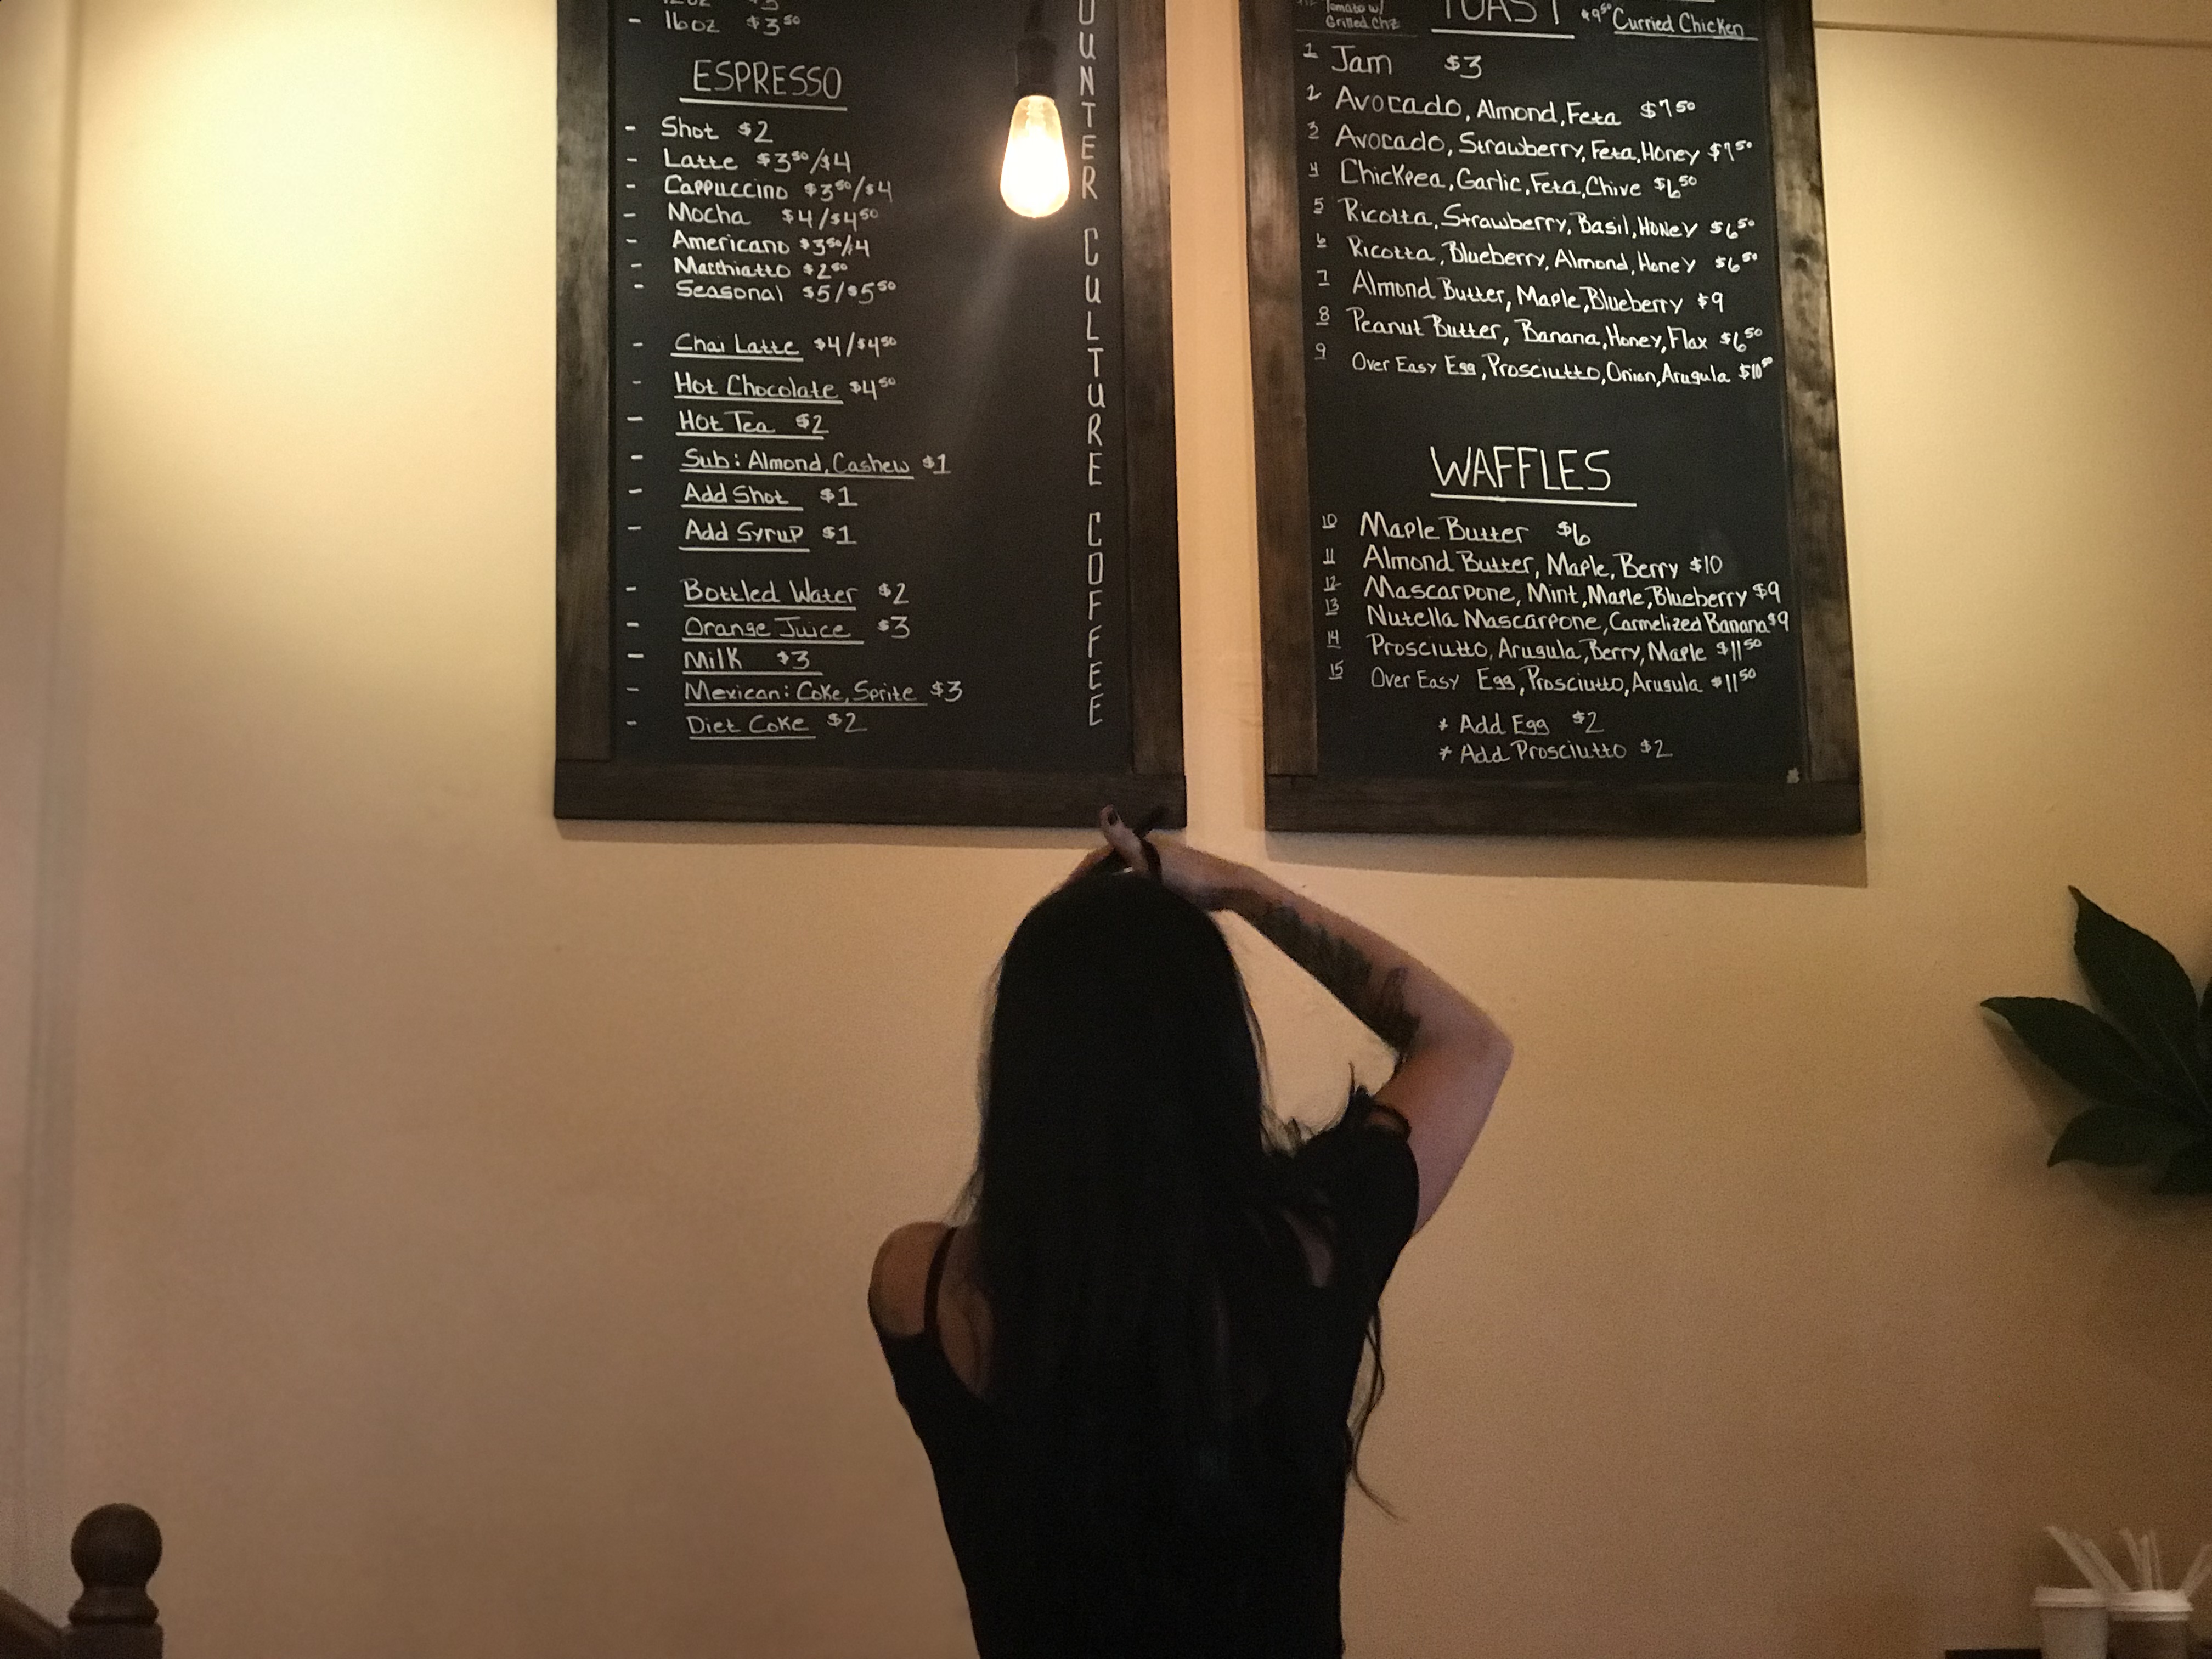 16oz $3⁵⁰
ESPRESSO
- Shot $2
- Latte $3⁵⁰/$4
- Cappuccino $3⁵⁰/$4
- Mocha $4/$4⁵⁰
- Americano $3⁵⁰/$4
- Macchiatto $2⁵⁰
- Seasonal $5/$5⁵⁰
- Chai Latte $4/$4⁵⁰
- Hot Chocolate $4⁵⁰
- Hot Tea $2
- Sub: Almond, Cashew $1
- Add Shot $1
- Add Syrup $1
- Bottled Water $2
- Orange Juice $3
- Milk $3
- Mexican: Coke, Sprite $3
- Diet Coke $2
OUNTER CULTURE COFFEE
Tomato w/
Grilled Chz
TOAST
$9⁵⁰ Curried Chicken
1 Jam $3
2 Avocado, Almond, Feta $7⁵⁰
3 Avocado, Strawberry, Feta, Honey $7⁵⁰
4 Chickpea, Garlic, Feta, Chive $6⁵⁰
5 Ricotta, Strawberry, Basil, Honey $6⁵⁰
6 Ricotta, Blueberry, Almond, Honey $6⁵⁰
7 Almond Butter, Maple, Blueberry $9
8 Peanut Butter, Banana, Honey, Flax $6⁵⁰
9 Over Easy Egg, Prosciutto, Onion, Arugula $10⁵⁰
WAFFLES
10 Maple Butter $6
11 Almond Butter, Maple, Berry $10
12 Mascarpone, Mint, Maple, Blueberry $9
13 Nutella Mascarpone, Carmelized Banana $9
14 Prosciutto, Arugula, Berry, Maple $11⁵⁰
15 Over Easy Egg, Prosciutto, Arugula $11⁵⁰
* Add Egg $2
* Add Prosciutto $2